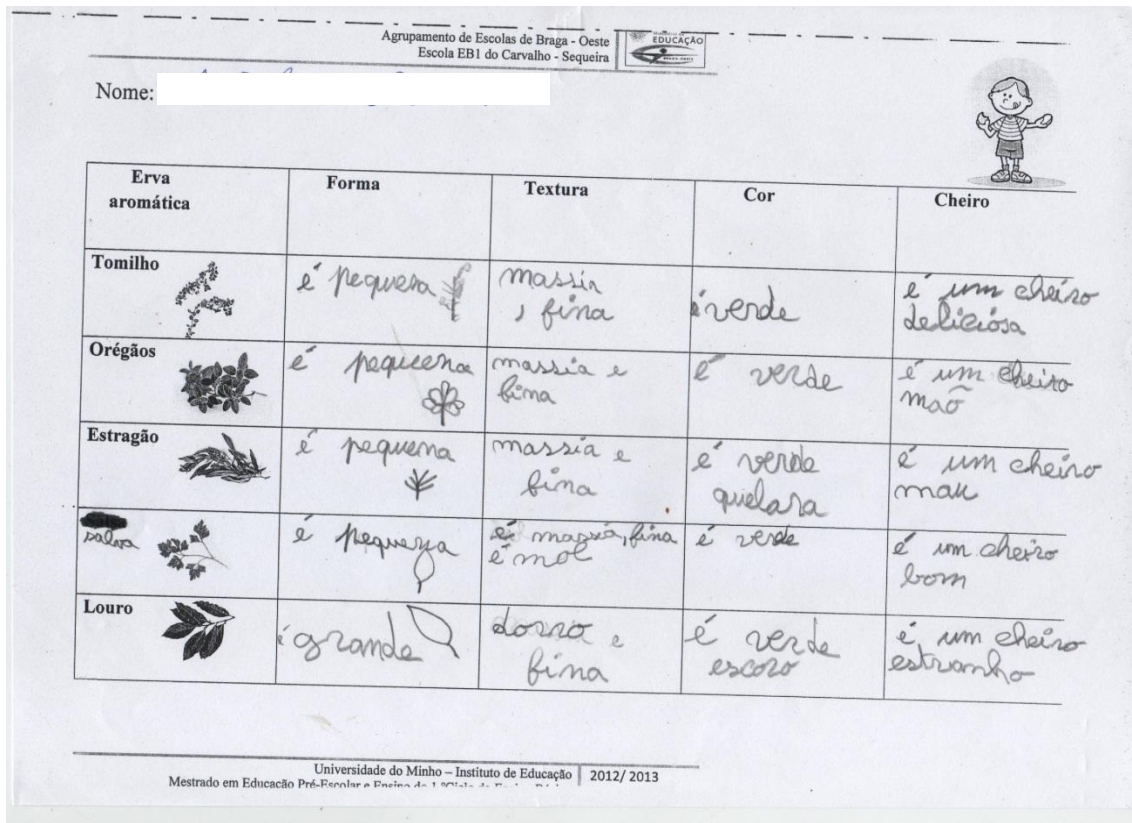 Agrupamento de Escolas de Braga - Oeste
Escola EB1 do Carvalho - Sequeira
EDUCAÇÃO
Nome:
Erva aromática Forma Textura Cor Cheiro
Tomilho
é pequena
massia
, fina
é verde
é um cheiro
deliciosa
Orégãos
é pequena
massia e
fina
é verde
é um cheiro
maõ
Estragão
é pequena
massia e
fina
é verde
quelara
é um cheiro
mau
salva
é pequena
é massia, fina
é mol
é verde
é um cheiro
bom
Louro
é grande
e
fina
é verde
escoro
é um cheiro
estranho
Universidade do Minho – Instituto de Educação 2012/ 2013
Mestrado em Educação Pré-Escolar e Ensino do 1.ºCiclo